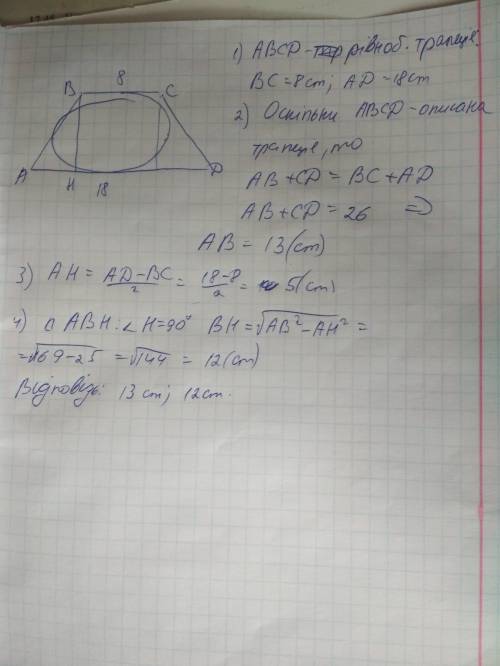 1) ABCD - рівноб. трапеція.
8
B
C
BC = 8 cm; AD = 18 cm
2) Оскільки ABCD - описана
трапеція, то
AB + CD = BC + AD
A
H
18
D
AB + CD = 26 =>
AB = 13 (cm)
3) AH = AD-BC/2 = 18-8/2 = 5 (cm)
4) △ ABH: ∠H=90° BH = √AB²-AH² =
= √169-25 = √144 = 12 (cm)
Відповідь: 13 cm; 12 cm.